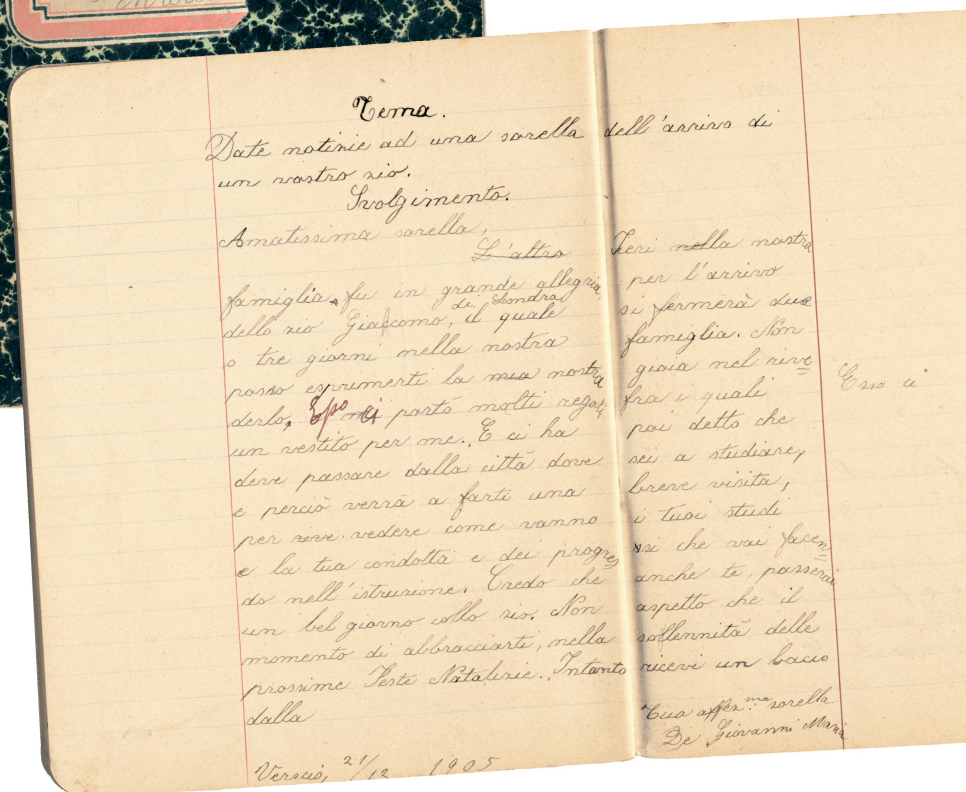 Tema.
Date notizie ad una sorella dell'arrivo di
un vostro zio.
Svolgimento.
Amatissima sorella,
L'altro Ieri nella nostra
famiglia, fu in grande allegria, per l'arrivo
dello zio Giaccomo, di Londra il quale si fermerà due
o tre giorni nella nostra famiglia. Non
posso esprimerti la mia nostra gioia nel rive
derlo, Esso mi ci portò molti regali, fra i quali Esso ci
un vestito per me. E ci ha poi detto che
deve passare dalla città dove sei a studiare,
e perciò verrà a farti una breve visita,
per rive vedere come vanno i tuoi studi
e la tua condolta e dei progres ssi che vai facen
do nell'istruzione. Credo che anche te, passerai
un bel giorno collo zio. Non aspetto che il
momento di abbracciarti, nella sollennità delle
prossime Feste Natalizie. Intanto ricevi un bacio
dalla
Tua affez.ma sorella
De Giovanni Maria
Verscio, 21/12 1905